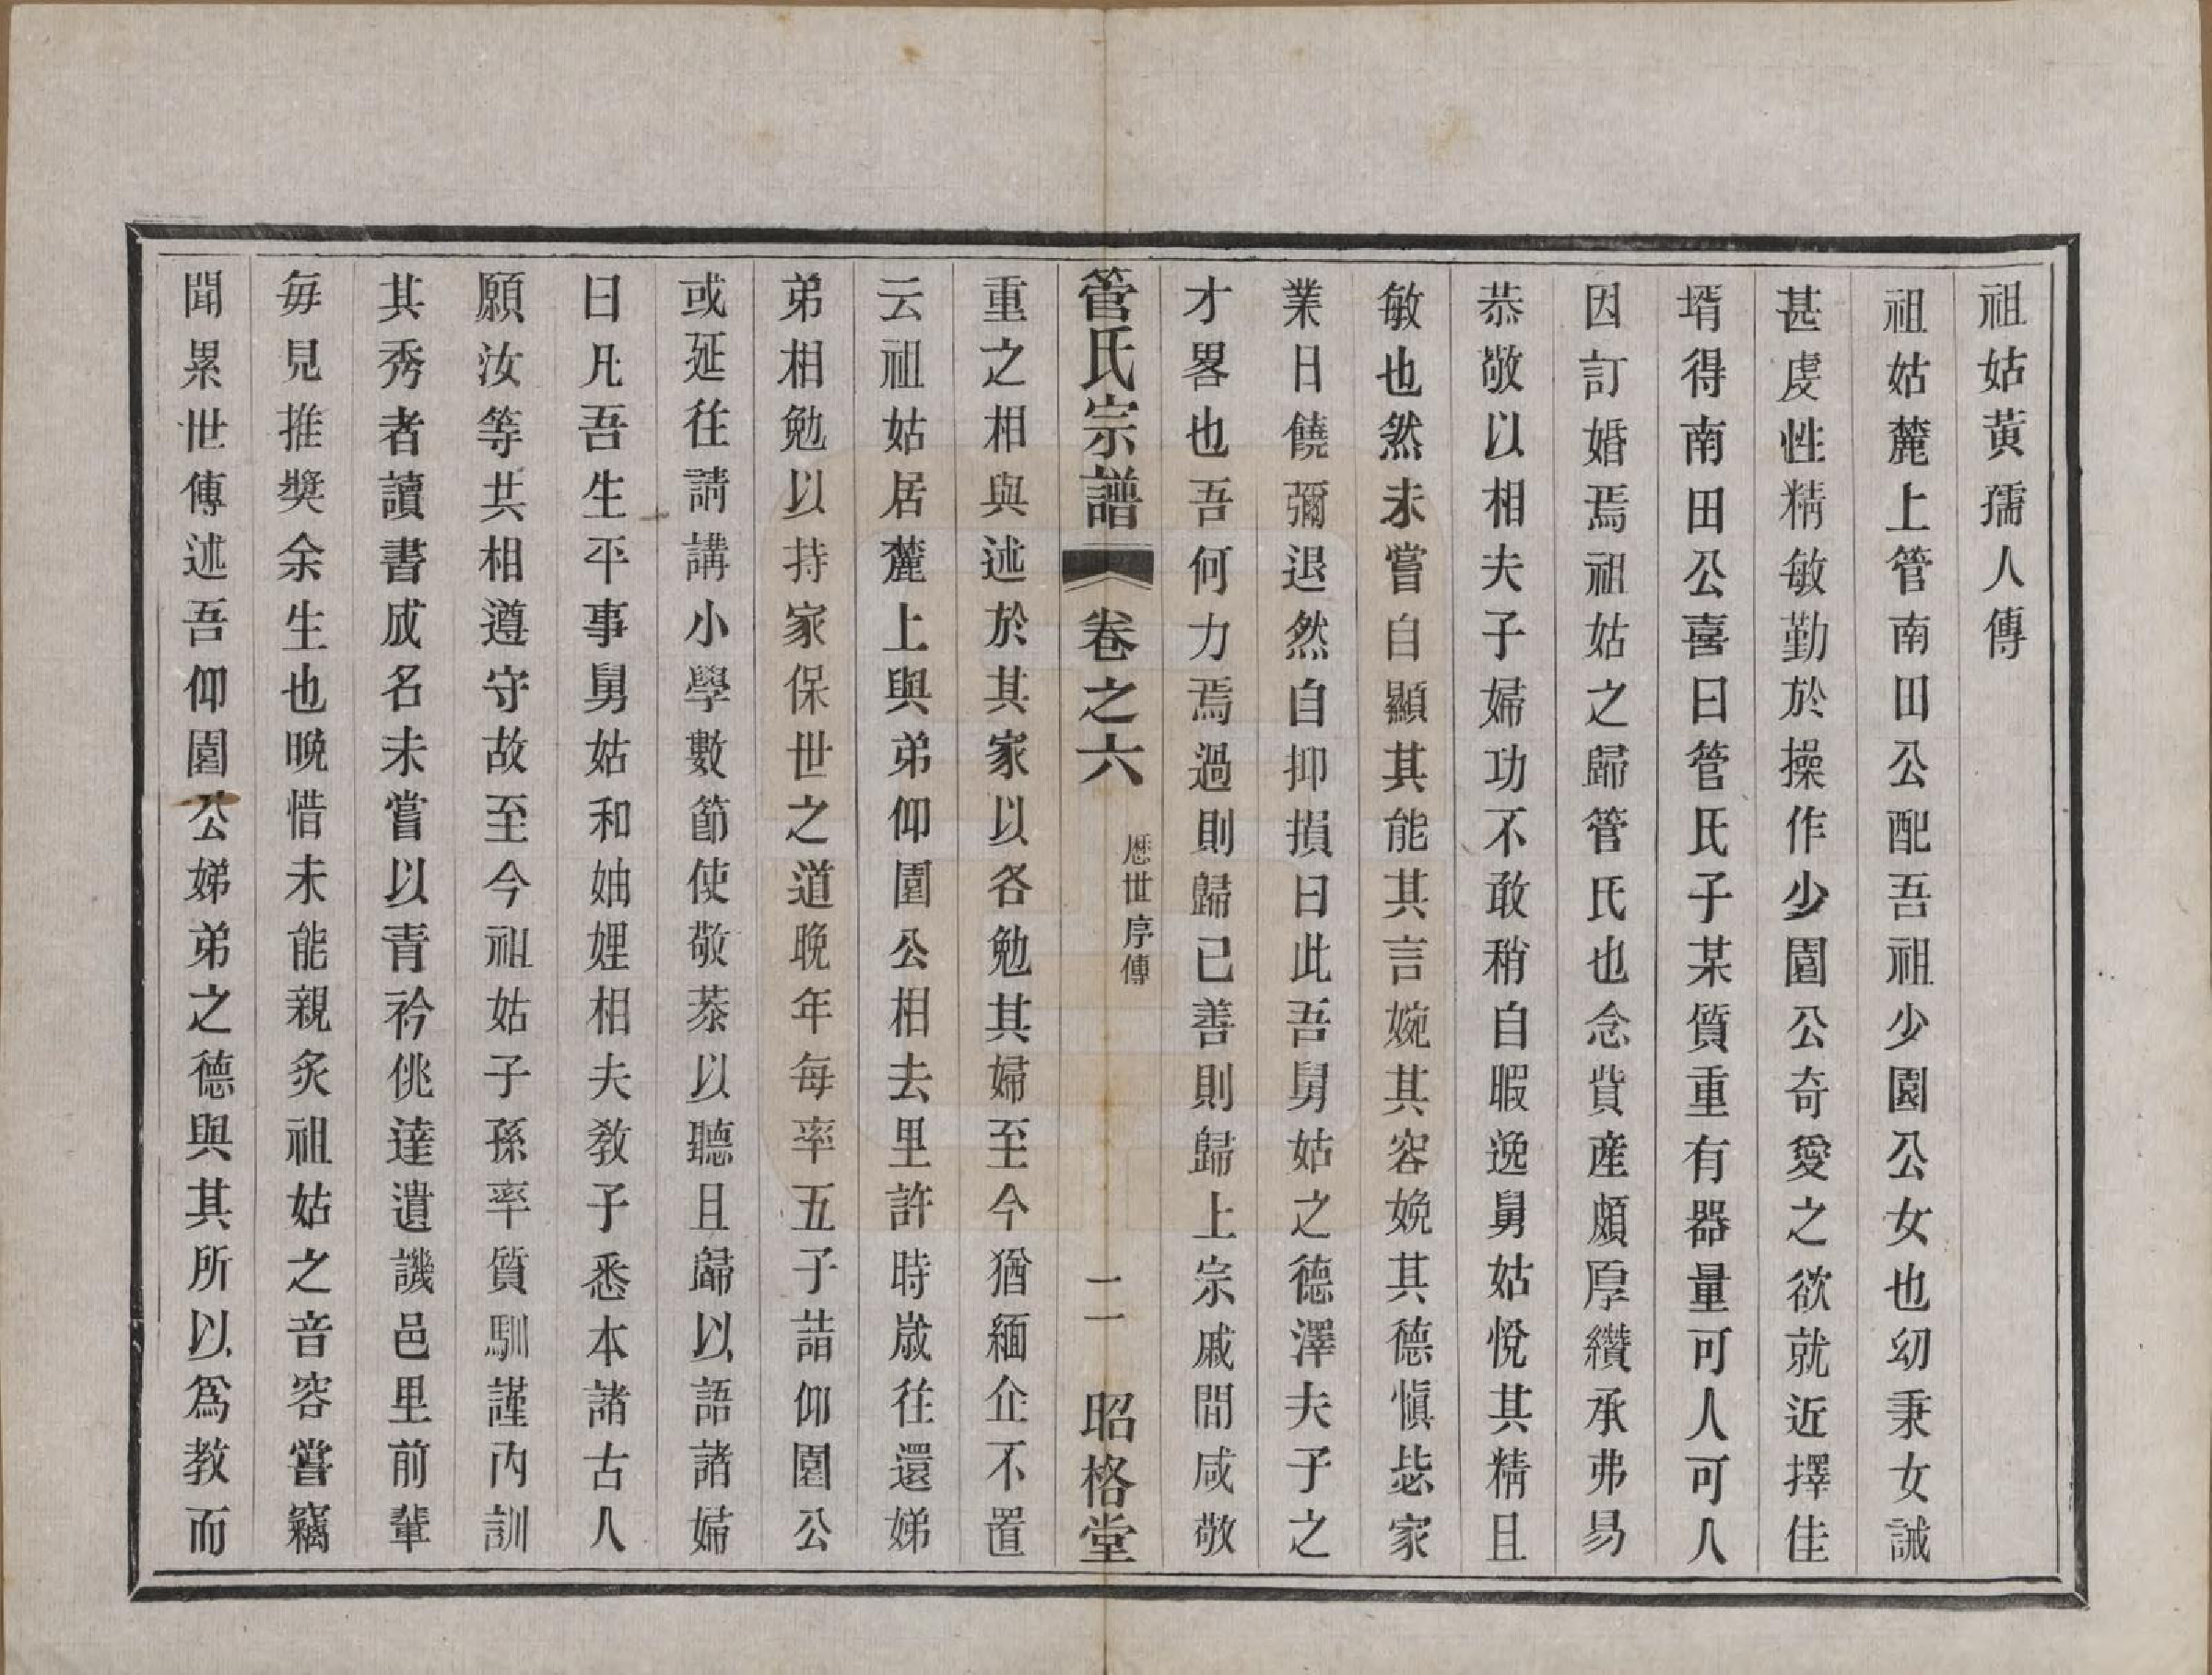 祖姑黃孺人傳
祖姑麓上管南田公配吾祖少園公女也幼秉女誡
甚虔性精敏勤於操作少園公奇愛之欲就近擇佳
壻得南田公喜曰管氏子某質重有器量可人可人
因訂婚焉祖姑之歸管氏也念貲產頗厚纘承弗易
恭敬以相夫子婦功不敢稍自暇逸舅姑悅其精且
敏也然未嘗自顯其能其言婉其容娩其德愼毖家
業日饒彌退然自抑損曰此吾舅姑之德澤夫子之
才畧也吾何力焉過則歸已善則歸上宗戚間咸敬
管氏宗譜 卷之六 歷世序傳 二 昭格堂
重之相與述於其家以各勉其婦至今猶緬企不置
云祖姑居麓上與弟仰園公相去里許時歲往還娣
弟相勉以持家保世之道晚年每率五子詣仰園公
或延往請講小學數節使敬恭以聽且歸以語諸婦
曰凡吾生平事舅姑和妯娌相夫教子悉本諸古人
願汝等共相遵守故至今祖姑子孫率質馴謹內訓
其秀者讀書成名未嘗以青衿佻達遺譏邑里前輩
每見推獎余生也晚惜未能親炙祖姑之音容嘗竊
聞累世傳述吾仰園公娣弟之德與其所以爲教而